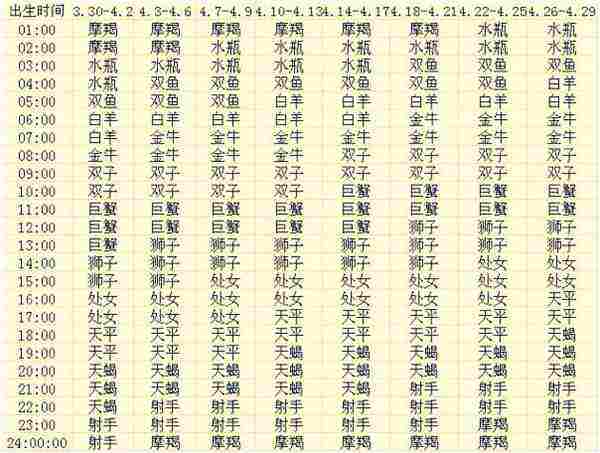 出生时间 3.30-4.2 4.3-4.6 4.7-4.9 4.10-4.13 4.14-4.17 4.18-4.21 4.22-4.25 4.26-4.29
01:00 摩羯 摩羯 摩羯 摩羯 摩羯 摩羯 水瓶 水瓶
02:00 摩羯 摩羯 水瓶 水瓶 水瓶 水瓶 水瓶 水瓶
03:00 水瓶 水瓶 水瓶 水瓶 水瓶 双鱼 双鱼 双鱼
04:00 水瓶 双鱼 双鱼 双鱼 双鱼 双鱼 双鱼 白羊
05:00 双鱼 双鱼 双鱼 白羊 白羊 白羊 白羊 白羊
06:00 白羊 白羊 白羊 白羊 白羊 金牛 金牛 金牛
07:00 白羊 金牛 金牛 金牛 金牛 金牛 金牛 金牛
08:00 金牛 金牛 金牛 金牛 双子 双子 双子 双子
09:00 双子 双子 双子 双子 双子 双子 双子 双子
10:00 双子 双子 双子 双子 巨蟹 巨蟹 巨蟹 巨蟹
11:00 巨蟹 巨蟹 巨蟹 巨蟹 巨蟹 巨蟹 巨蟹 巨蟹
12:00 巨蟹 巨蟹 巨蟹 巨蟹 巨蟹 狮子 狮子 狮子
13:00 巨蟹 狮子 狮子 狮子 狮子 狮子 狮子 狮子
14:00 狮子 狮子 狮子 狮子 狮子 狮子 处女 处女
15:00 狮子 狮子 处女 处女 处女 处女 处女 处女
16:00 处女 处女 处女 处女 处女 处女 处女 天平
17:00 处女 处女 处女 天平 天平 天平 天平 天平
18:00 天平 天平 天平 天平 天平 天平 天平 天蝎
19:00 天平 天平 天平 天蝎 天蝎 天蝎 天蝎 天蝎
20:00 天蝎 天蝎 天蝎 天蝎 天蝎 天蝎 天蝎 天蝎
21:00 天蝎 天蝎 天蝎 天蝎 天蝎 射手 射手 射手
22:00 天蝎 射手 射手 射手 射手 射手 射手 射手
23:00 射手 射手 射手 射手 射手 射手 摩羯 摩羯
24:00:00 射手 摩羯 摩羯 摩羯 摩羯 摩羯 摩羯 摩羯